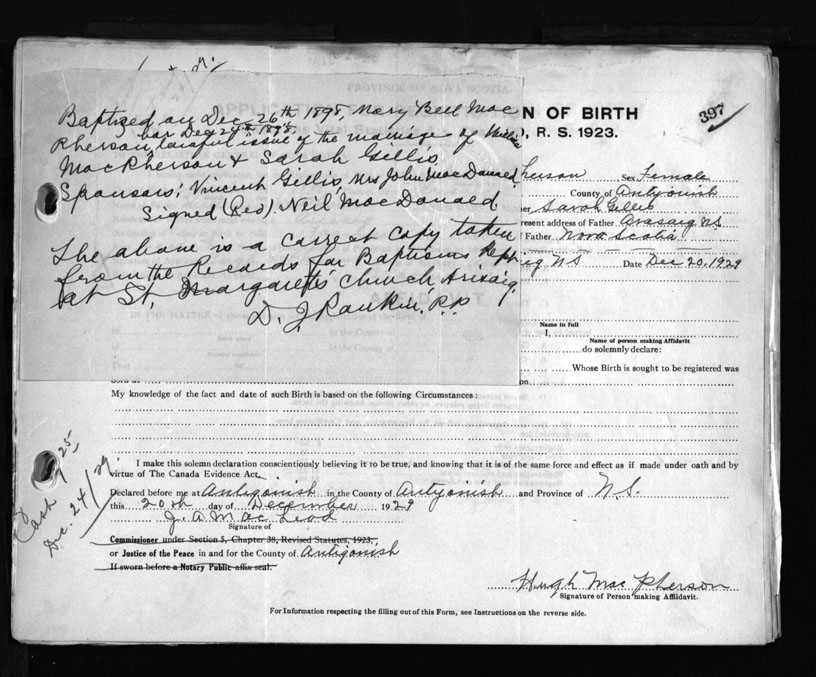 Baptized on Dec. 26th 1898, Mary Bell Mac
Pherson, lawful issue of the marriage of
bor Dec 24th 1898,
MacPherson & Sarah Gillis,
Sponsors; Vincent Gillis, Mrs John MacDonald,
Signed (Rev). Neil MacDonald
The above is a correct copy taken
from the Records for Baptisms kept
at St. Margaret's Church Arisaig.
D. J. Rankin. P.P.
N OF BIRTH
397
), R. S. 1923.
herson Sex Female
County of Antigonish
er Sarah Gillis
resent address of Father Arasaig NS
Father Nova Scotia
NS Date Dec 20, 1929
Name in full
I,
Name of person making Affidavit
do solemnly declare:
Whose Birth is sought to be registered was
on
My knowledge of the fact and date of such Birth is based on the following Circumstances:
I make this solemn declaration conscientiously believing it to be true, and knowing that it is of the same force and effect as if made under oath and by
virtue of The Canada Evidence Act.
Declared before me at Antigonish in the County of Antigonish and Province of N.S.
this 20th day of December 1929
J. A MacLeod
Signature of
Commissioner under Section 5, Chapter 38, Revised Statutes, 1923,
or Justice of the Peace in and for the County of Antigonish
If sworn before a Notary Public affix seal.
Hugh MacPherson
Signature of Person making Affidavit.
For Information respecting the filling out of this Form, see Instructions on the reverse side.
Cash .25
Dec. 24/29.